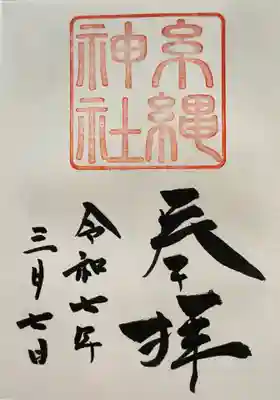 糸縄
神社
奉拝
令和七年
三月七日